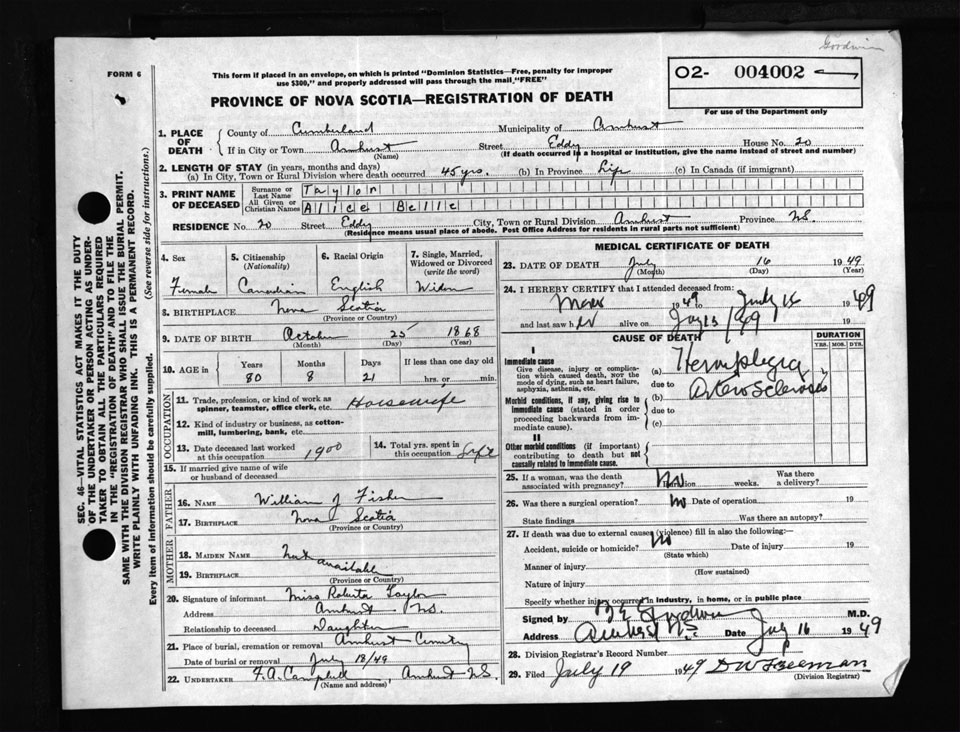 Goodwin
FORM 6
This form if placed in an envelope, on which is printed "Dominion Statistics—Free, penalty for improper use $300," and properly addressed will pass through the mail "FREE"
O2- 004002
For use of the Department only
PROVINCE OF NOVA SCOTIA—REGISTRATION OF DEATH
SEC. 46—VITAL STATISTICS ACT MAKES IT THE DUTY
OF THE UNDERTAKER OR PERSON ACTING AS UNDER-
TAKER TO OBTAIN ALL THE PARTICULARS REQUIRED
IN THE "REGISTRATION OF DEATH" AND TO FILE THE
SAME WITH THE DIVISION REGISTRAR WHO SHALL ISSUE THE BURIAL PERMIT.
WRITE PLAINLY WITH UNFADING INK. THIS IS A PERMANENT RECORD.
Every item of information should be carefully supplied. (See reverse side for instructions.)
1. PLACE OF DEATH
County of Cumberland Municipality of Amherst
If in City or Town Amherst (Name) Street Eddy House No. 20
(If death occurred in a hospital or institution, give the name instead of street and number)
2. LENGTH OF STAY (in years, months and days)
(a) In City, Town or Rural Division where death occurred 45 yrs. (b) In Province Life (c) In Canada (if immigrant)
3. PRINT NAME OF DECEASED
Surname or Last Name Taylor
All Given or Christian Names Alice Belle
RESIDENCE No. 20 Street Eddy City, Town or Rural Division Amherst Province N.S.
(Residence means usual place of abode. Post Office Address for residents in rural parts not sufficient)
4. Sex Female
5. Citizenship (Nationality) Canadian
6. Racial Origin English
7. Single, Married, Widowed or Divorced (write the word) Widow
8. BIRTHPLACE Nova Scotia
(Province or Country)
9. DATE OF BIRTH October 25 1868
(Month) (Day) (Year)
10. AGE in Years Months Days If less than one day old
80 8 21 hrs. or min.
OCCUPATION
11. Trade, profession or kind of work as spinner, teamster, office clerk, etc. Housewife
12. Kind of industry or business, as cotton-mill, lumbering, bank, etc.
13. Date deceased last worked at this occupation 1900
14. Total yrs. spent in this occupation Life
15. If married give name of wife or husband of deceased
FATHER
16. NAME William J Fisher
17. BIRTHPLACE Nova Scotia
(Province or Country)
MOTHER
18. MAIDEN NAME Not available
19. BIRTHPLACE
(Province or Country)
20. Signature of informant Miss Roberta Taylor
Address Amherst N.S.
Relationship to deceased Daughter
21. Place of burial, cremation or removal Amherst Cemetery
Date of burial or removal July 18/49
22. UNDERTAKER F.A. Campbell, Amherst N.S.
(Name and address)
MEDICAL CERTIFICATE OF DEATH
23. DATE OF DEATH July 16 1949
(Month) (Day) (Year)
24. I HEREBY CERTIFY that I attended deceased from:
1949 to July 16 1949
and last saw her alive on July 15 1949
CAUSE OF DEATH
DURATION
YRS. MOS. DYS.
I
Immediate cause
Give disease, injury or complication which caused death, NOT the mode of dying, such as heart failure, asphyxia, asthenia, etc.
(a) Hemiplegia
due to Arterio Sclerosis
Morbid conditions, if any, giving rise to immediate cause (stated in order proceeding backwards from immediate cause).
(b)
due to
(c)
II
Other morbid conditions (if important) contributing to death but not causally related to immediate cause.
25. If a woman, was the death associated with pregnancy? No Duration weeks. Was there a delivery?
26. Was there a surgical operation? No Date of operation 19
State findings Was there an autopsy?
27. If death was due to external causes (violence) fill in also the following:—
Accident, suicide or homicide? No Date of injury 19
(State which)
Manner of injury
(How sustained)
Nature of injury
Specify whether injury occurred in industry, in home, or in public place
Signed by Goodwin M.D.
Address Amherst N.S. Date July 16 1949
28. Division Registrar's Record Number
29. Filed July 19 1949 D W Freeman
(Division Registrar)